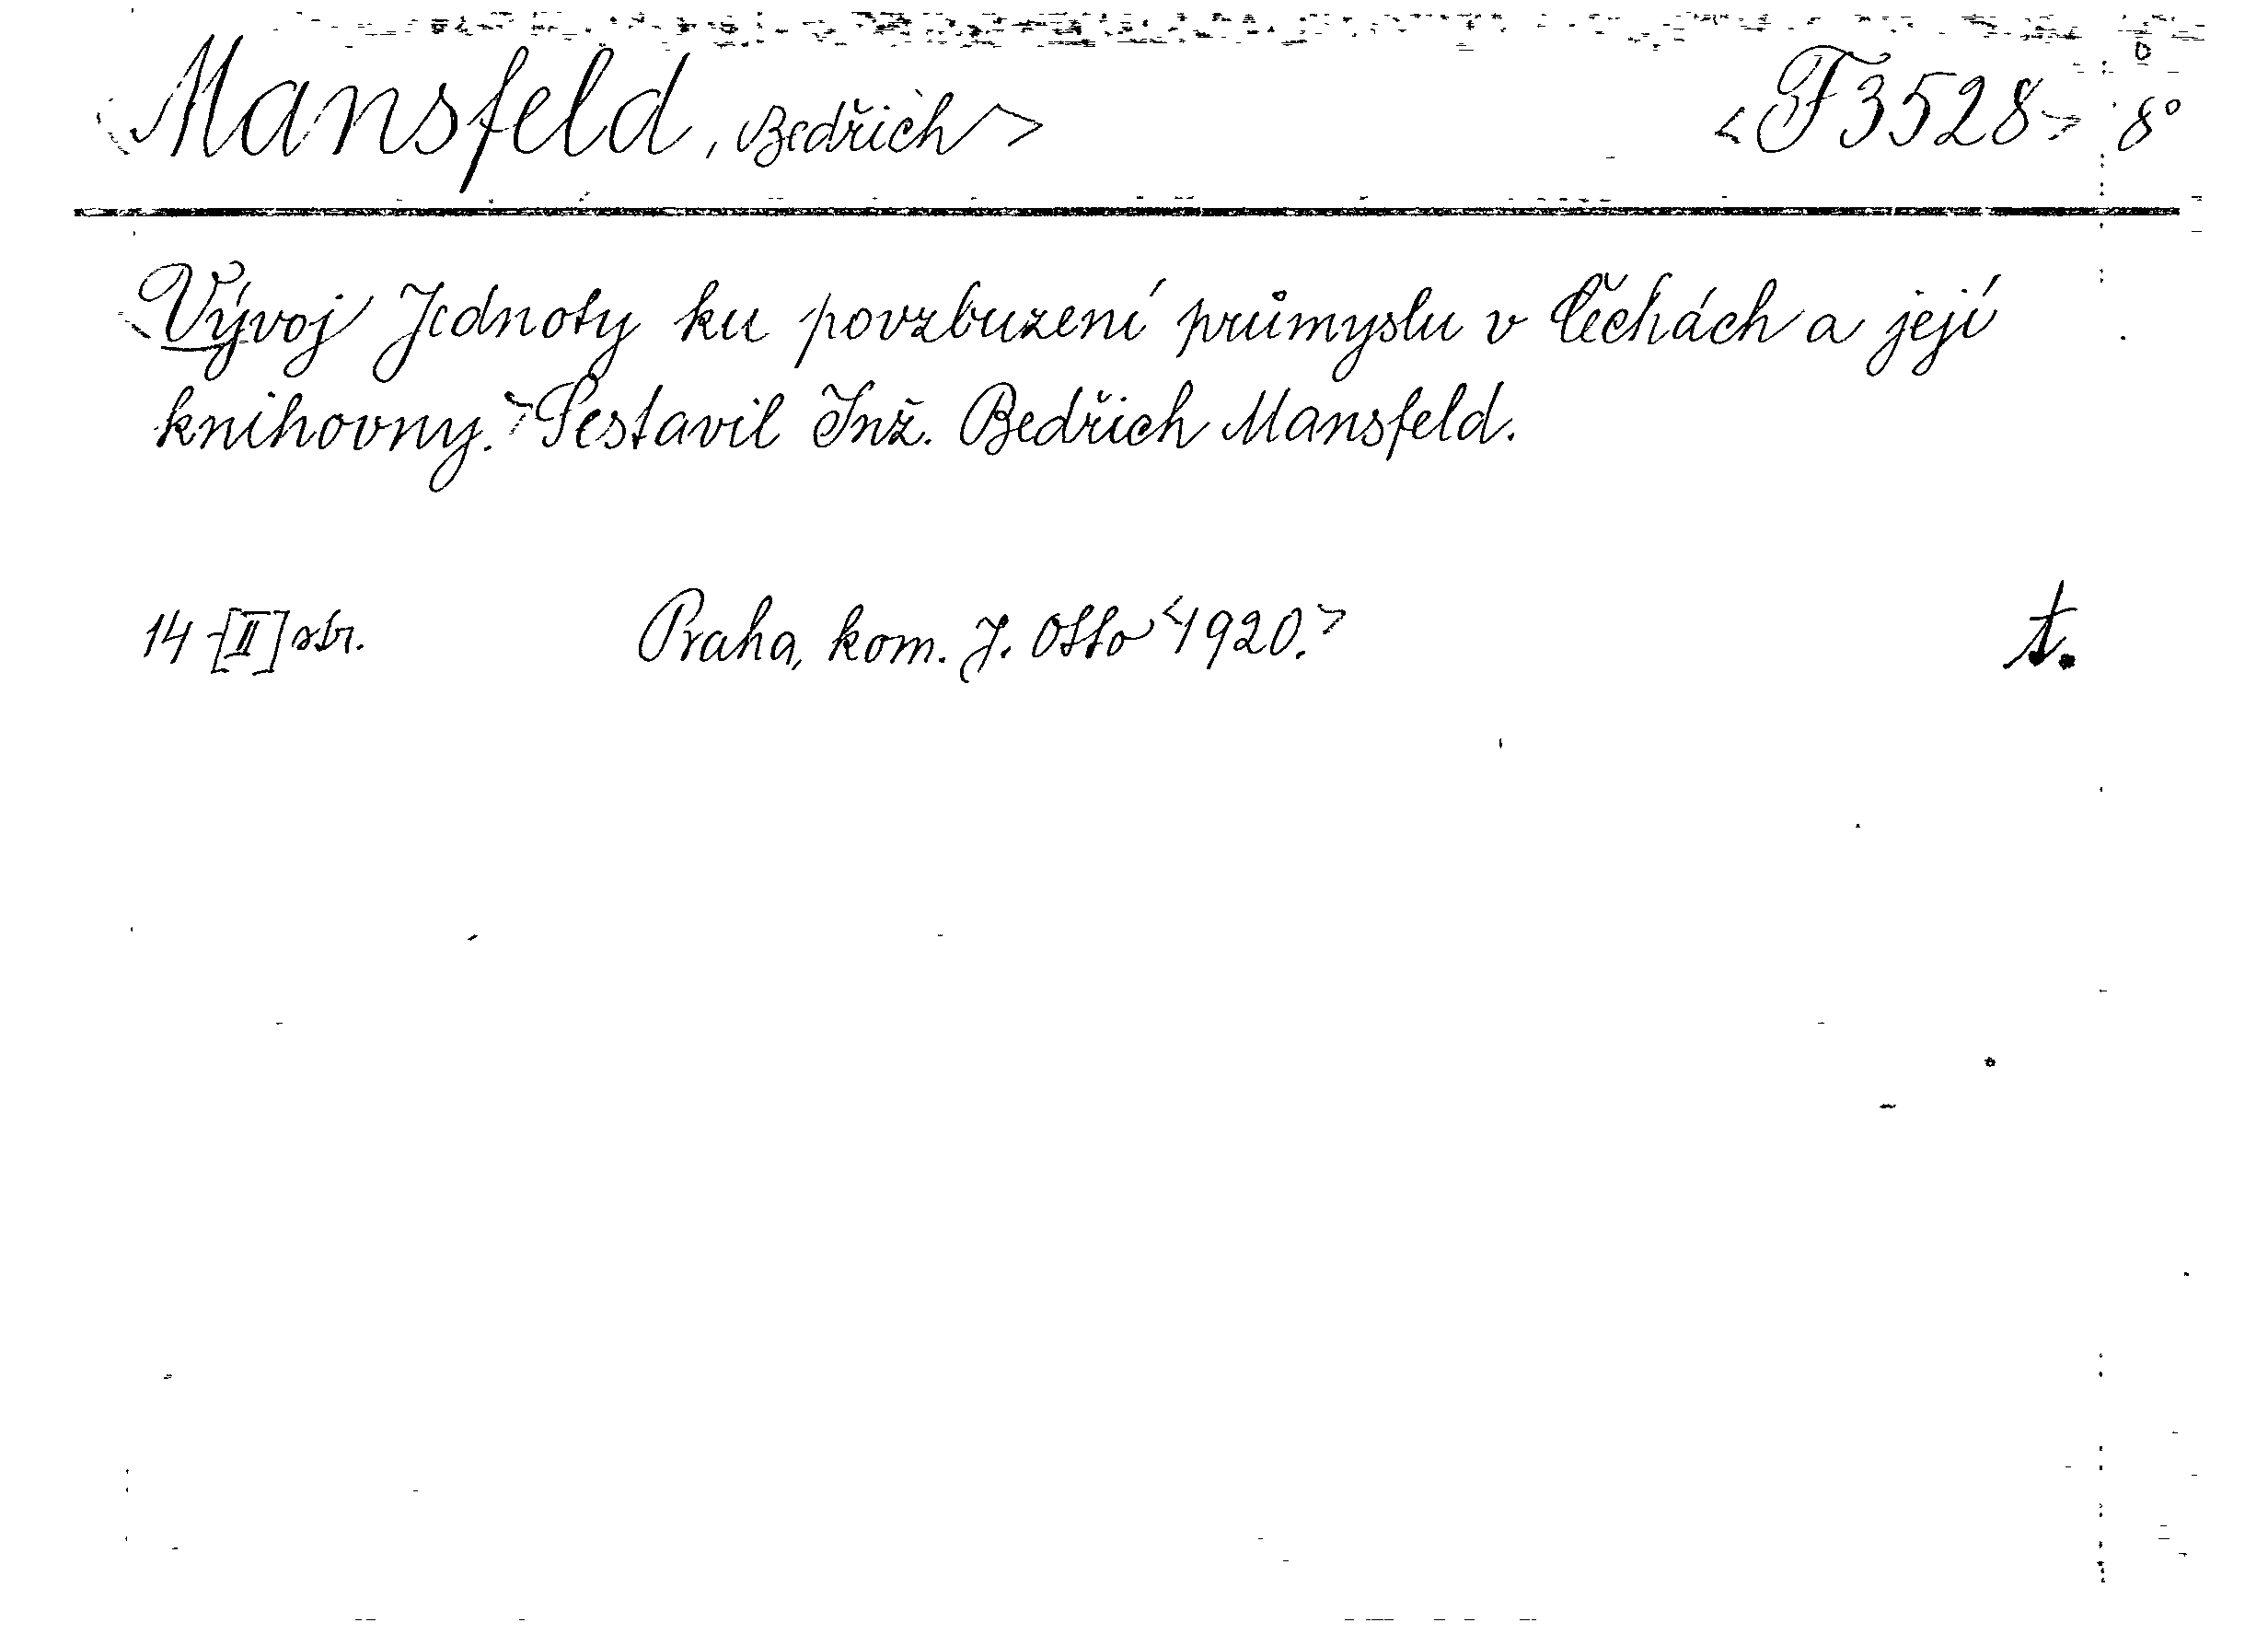 <Mansfeld, Bedřich> <F 3528> 8°
<Vývoj Jednoty ku povzbuzení průmyslu v Čechách a její
knihovny.> Sestavil Inž. Bedřich Mansfeld.
14 - [II] str. Praha, kom. J. Otto <1920.> t.